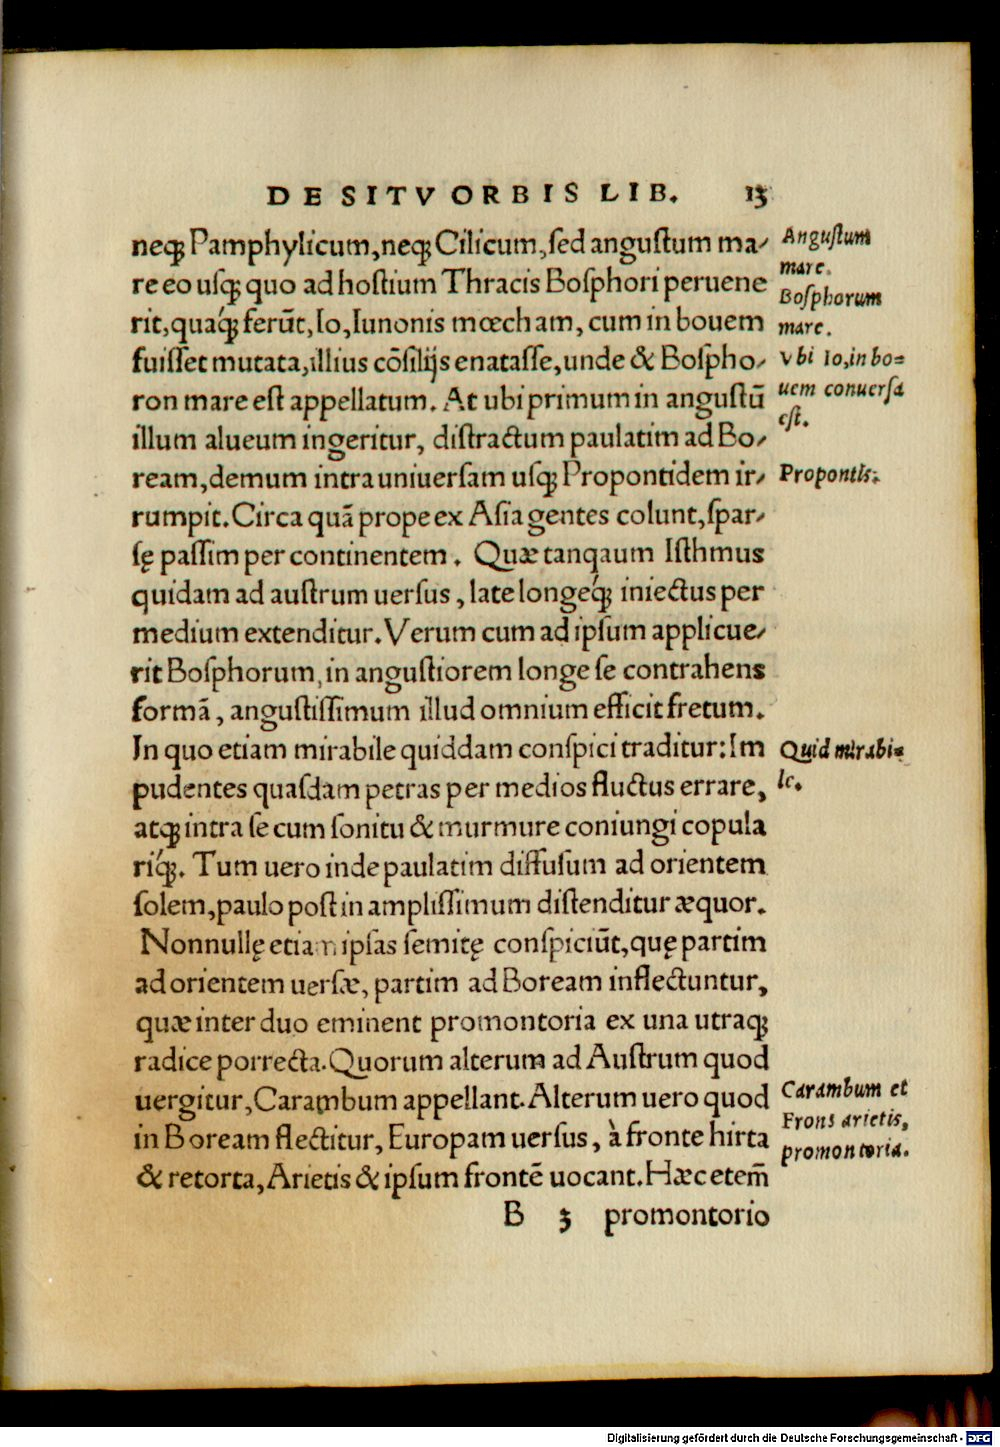 DE SITV ORBIS LIB. 13
neq; Pamphylicum, neq; Cilicum, sed angustum ma-
re eo usq; quo ad hostium Thracis Bosphori peruene
rit, quáq; ferūt, Io, Iunonis mœcham, cum in bouem
fuisset mutata, illius cōsilijs enatasse, unde & Bospho-
ron mare est appellatum. At ubi primum in angustū
illum alueum ingeritur, distractum paulatim ad Bo-
ream, demum intra uniuersam usq; Propontidem ir-
rumpit. Circa quā prope ex Asia gentes colunt, spar-
sę passim per continentem. Quæ tanqaum Isthmus
quidam ad austrum uersus, late longeq́; iniectus per
medium extenditur. Verum cum ad ipsum applicue-
rit Bosphorum, in angustiorem longe se contrahens
formā, angustissimum illud omnium efficit fretum.
In quo etiam mirabile quiddam conspici traditur: Im
pudentes quasdam petras per medios fluctus errare,
atq; intra se cum sonitu & murmure coniungi copula
riq́;. Tum uero inde paulatim diffusum ad orientem
solem, paulo post in amplissimum distenditur æquor.
Nonnullę etiam ipsas semitę conspiciūt, quę partim
ad orientem uersæ, partim ad Boream inflectuntur,
quæ inter duo eminent promontoria ex una utraq;
radice porrecta. Quorum alterum ad Austrum quod
uergitur, Carambum appellant. Alterum uero quod
in Boream flectitur, Europam uersus, à fronte hirta
& retorta, Arietis & ipsum frontē uocant. Hæc etem̄
B 3 promontorio
Angustum
mare.
Bosphorum
mare.
Vbi Io, in bo=
uem conuersa
est.
Propontis.
Quid mirabi=
le.
Carambum et
Frons arietis,
promontoria.
Digitalisierung gefördert durch die Deutsche Forschungsgemeinschaft - DFG